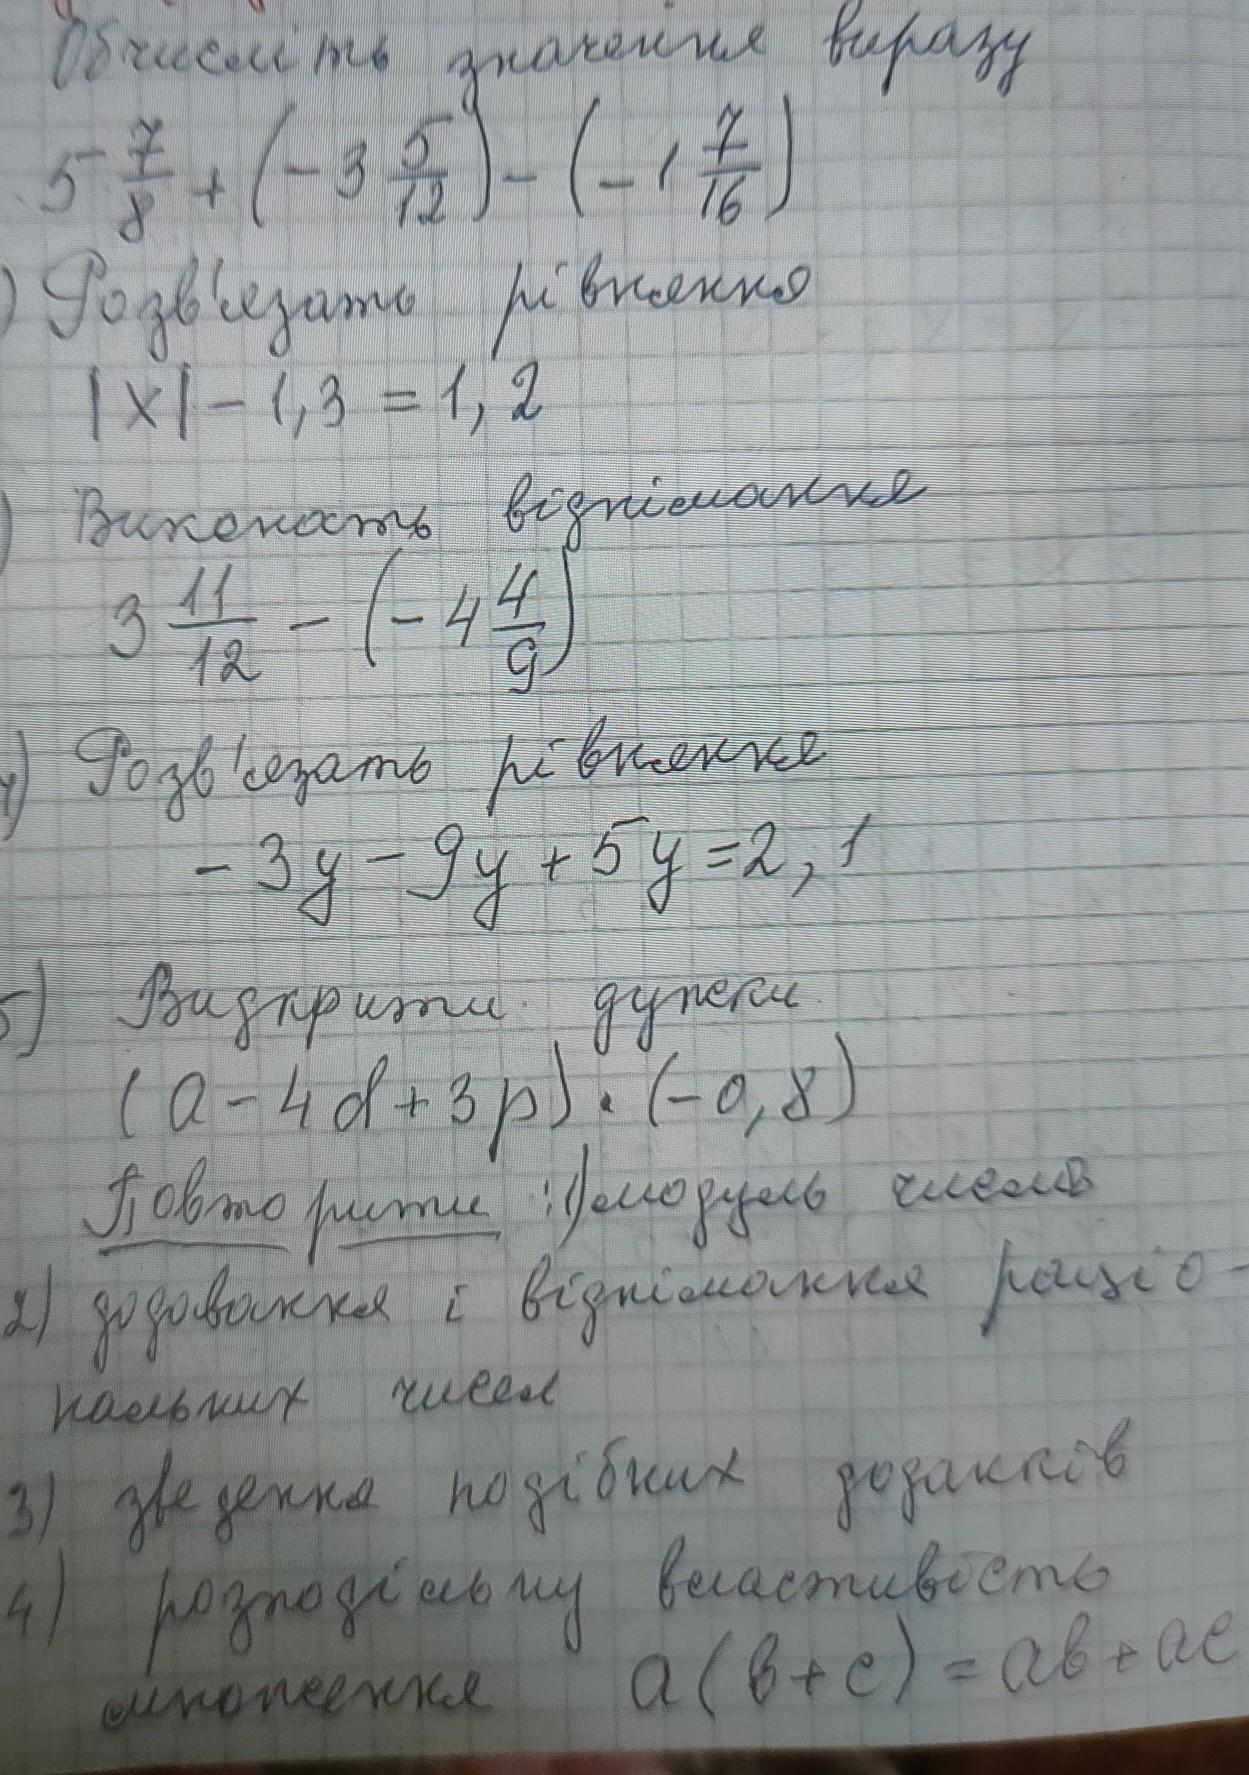 Обчисліть значення виразу
5 7/8 + (- 3 5/12) - (- 1 7/16)
) Розв'язать рівняння
|x| - 1,3 = 1,2
) Виконать віднімання
3 11/12 - (- 4 4/9)
4) Розв'язать рівняння
- 3y - 9y + 5y = 2,1
5) Видкрити дужки
(a - 4d + 3p) · (-0,8)
Повторити : 1) модуль числа
2) додавання і віднімання раціо-
нальних чисел
3) зведення подібних доданків
4) розподільну властивость
множення a(b+c) = ab + ac